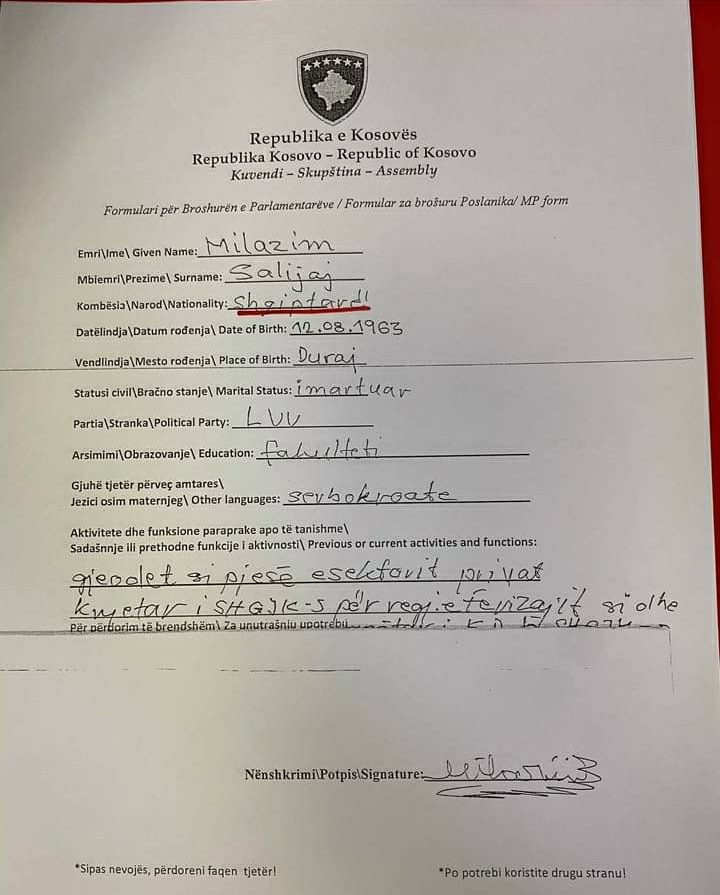 Republika e Kosovës
Republika Kosovo – Republic of Kosovo
Kuvendi – Skupština – Assembly
Formulari për Broshurën e Parlamentarëve / Formular za brošuru Poslanika/ MP form
Emri\Ime\ Given Name: Milazim
Mbiemri\Prezime\ Surname: Salijaj
Kombësia\Narod\Nationality: Shqiptar
Datëlindja\Datum rođenja\ Date of Birth: 12.08.1963
Vendlindja\Mesto rođenja\ Place of Birth: Duraj
Statusi civil\Bračno stanje\ Marital Status: imartuar
Partia\Stranka\Political Party: LVV
Arsimimi\Obrazovanje\ Education: fakulteti
Gjuhë tjetër përveç amtares\
Jezici osim maternjeg\ Other languages: serbokroate
Aktivitete dhe funksione paraprake apo të tanishme\
Sadašnnje ili prethodne funkcije i aktivnosti\ Previous or current activities and functions:
gjeodet si pjesë esektorit privat
kryetar i SHGJK-s për regj.e Ferizajit si dhe
Për përdorim të brendshëm\ Za unutrašniu upotrebu
Nënshkrimi\Potpis\Signature:
*Sipas nevojës, përdoreni faqen tjetër!
*Po potrebi koristite drugu stranu!